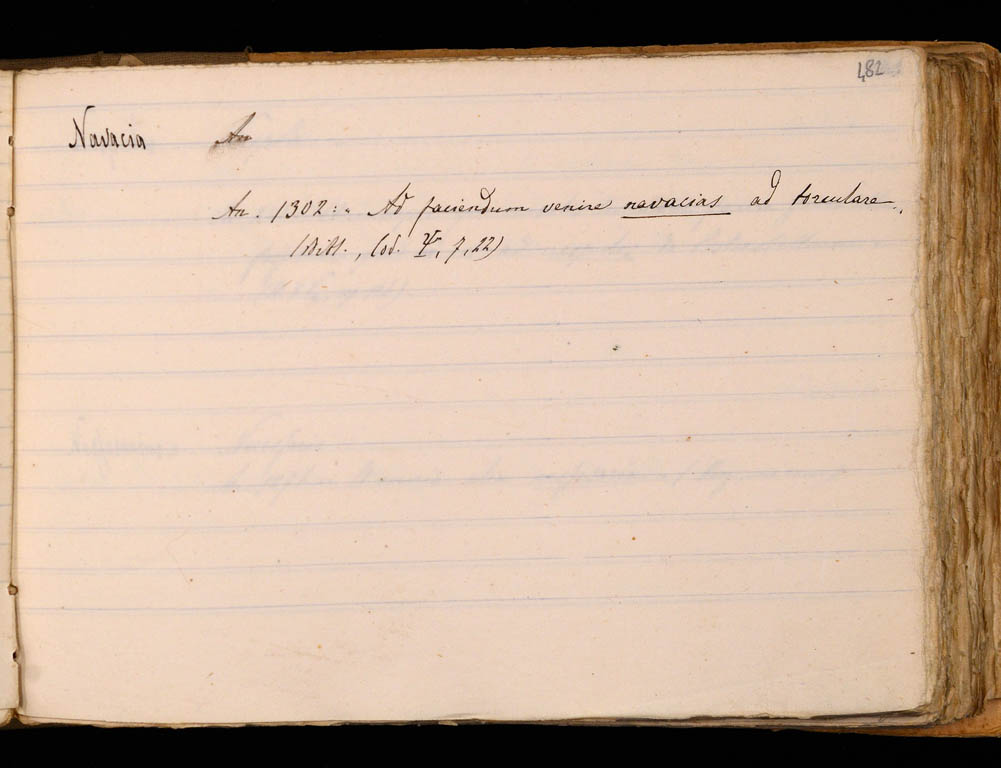 482
Navacia An
An. 1302: „ Ad faciendum venire navacias ad torculare „
(Bibl., Cod. Ψ, 7, 22)